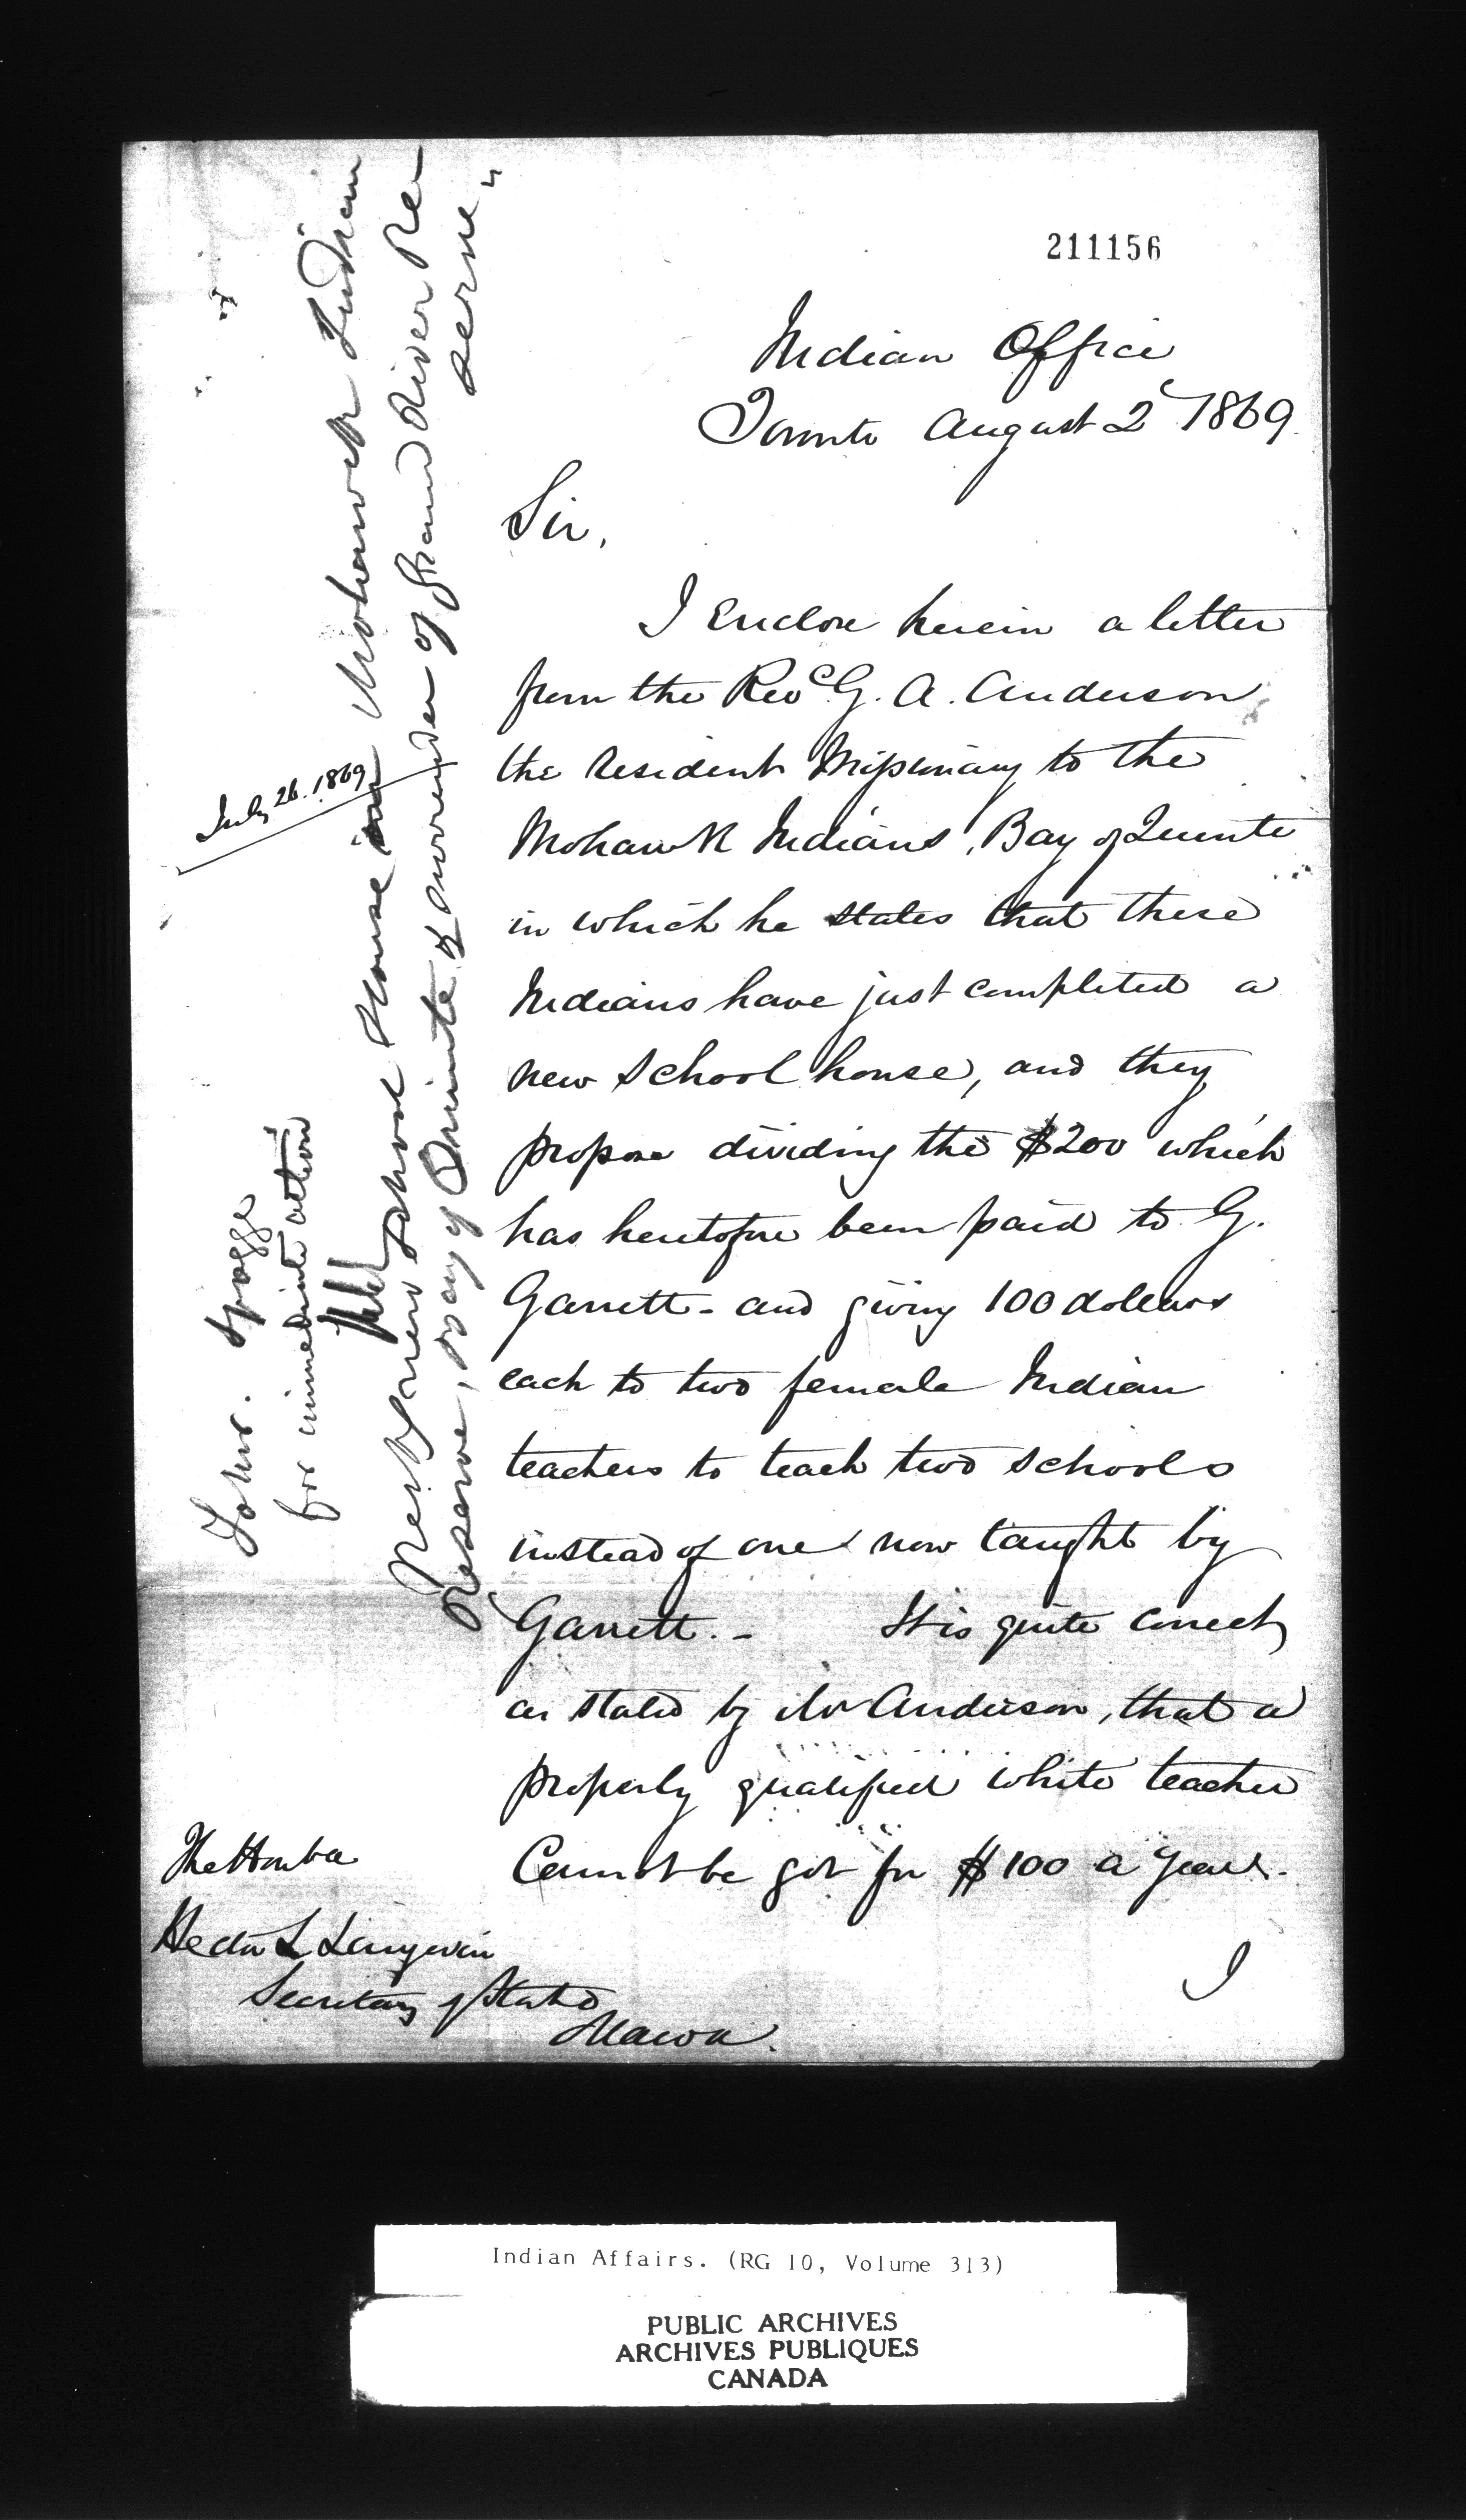 211156
Indian Office
Toronto August 2d 1869.
Sir,
I enclose herein a letter
from the Revd G. A. Anderson
the resident Missionary to the
Mohawk Indians, Bay of Quinte
in which he states that these
Indians have just completed a
new school house, and they
propose dividing the $200 which
has heretofore been paid to G.
Garrett - and giving 100 dollars
each to two female Indian
teachers to teach two schools
instead of one now taught by
Garrett. - It is quite correct,
as stated by Mr Anderson, that a
properly qualified white teacher
Cannot be got for $100 a year.
I
The Honble
Hector L Langevin
Secretary of State
Ottawa.
July 26. 1869
To Mr. Spragge
for immediate action
HLL
Respecting School House in Mohawk Indian
Reserve, Bay of Quinte & surrender of Grand River Re
serve"
Indian Affairs. (RG 10, Volume 313)
PUBLIC ARCHIVES
ARCHIVES PUBLIQUES
CANADA